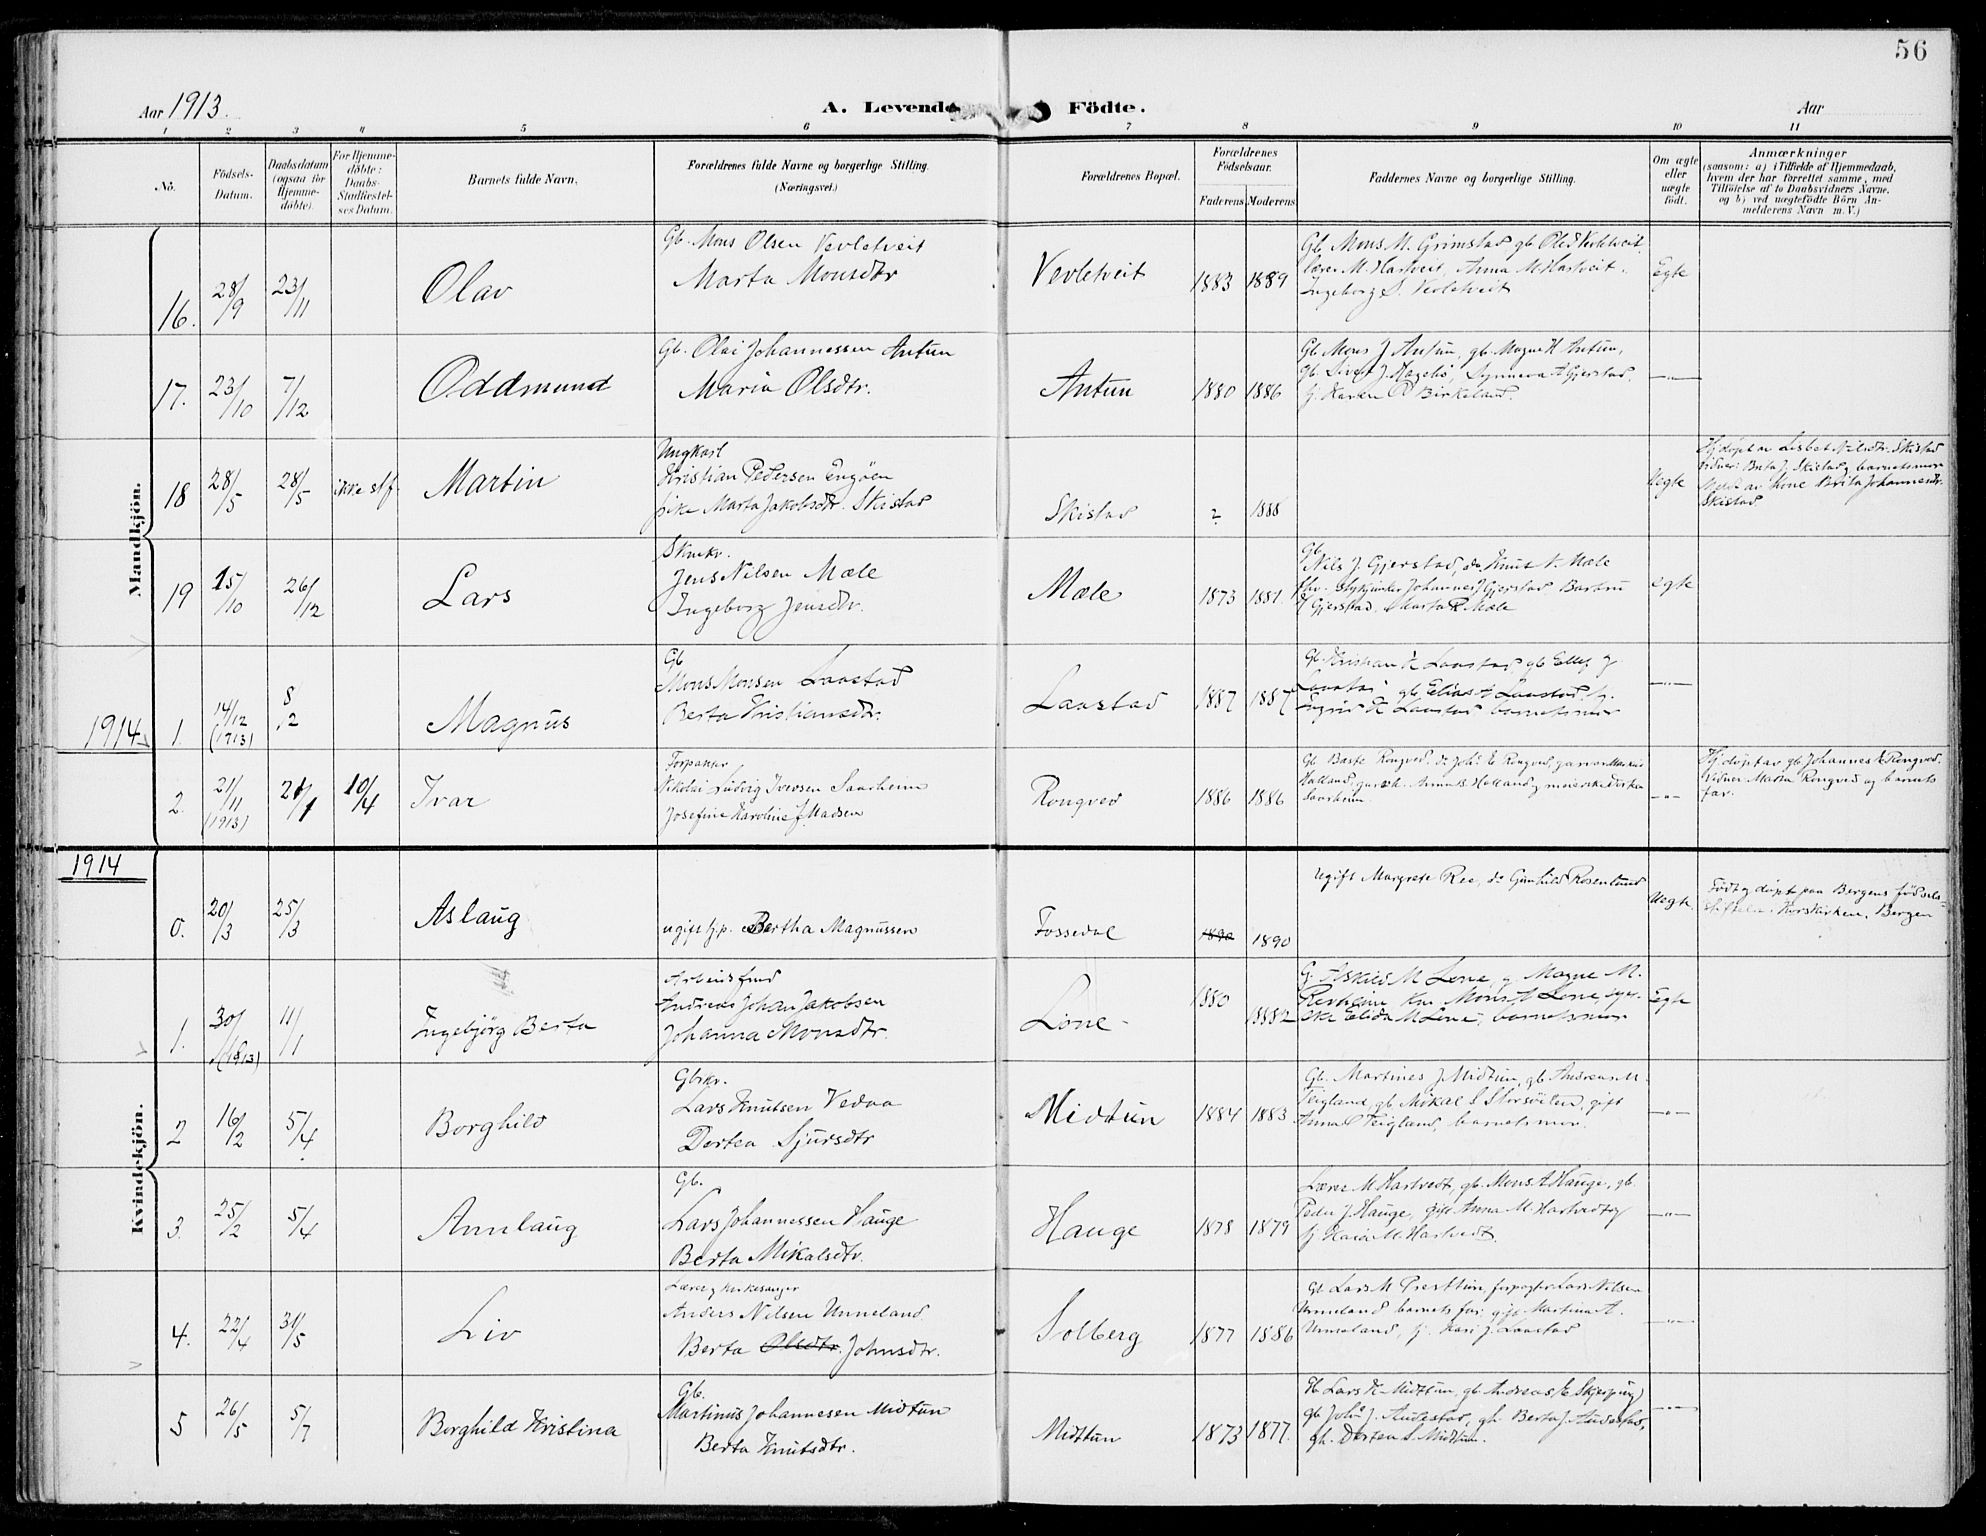 56
Aar 1913.
A. Levende Födte.
Aar
1 2 3 4 5 6 7 8 9 10 11
No.
Födsels-
Datum.
Daabsdatum
(ogsaa for
Hjemme-
döbte).
For Hjemme-
döbte:
Daabs-
Stadfæstel-
ses Datum.
Barnets fulde Navn.
Forældrenes fulde Navne og borgerlige Stilling.
(Næringsvei.)
Forældrenes Bopæl.
Forældrenes
Födselsaar.
Faderens Moderens
Faddernes Navne og borgerlige Stilling.
Om ægte
eller
uægte
födt.
Anmærkninger
(saasom: a) i Tilfælde af Hjemmedaab,
hvem der har forrettet samme, med
Tilföielse af to Daabsvidners Navne,
og b) ved uægtefödte Börn An-
melderens Navn m. V.)
Mandkjön.
16. 28/9 23/11 Olav
Gb. Mons Olsen Vevletveit
Marta Monsdtr
Vevletveit 1883 1889
Gb. Mons M. Grimstad gb Ole Vevletveit
lærer M. Hartveit, Anna M. Hartveit,
Ingeborg S. Vevletveit
Egte
17. 23/10 7/12 Oddmund
Gb. Olai Johannessen Antun
Maria Olsdtr.
Antun 1880 1886
Gb Mons J Antun, gb. Magne H Antun,
J. Hagebø, Synneva A Gjerstad,
Karen O Birkeland.
—"—
18 28/5 28/5 ikke stf. Martin
Ungkarl
Kristian Pedersen Engøen
pike Marta Jakobsdtr. Skistad
Skistad ? 1888
Uegte
Hj.døpt av Lisbet Nilsdtr. Skistad
vidner: Brita J. Skistad og barnets mor
Meldt av kone Brita Johannesdtr.
Skistad
19 15/10 26/12 Lars
Jens Nilsen Mæle
Ingeborg Jensdtr.
Mæle 1873 1881
Gb
Nils J. Gjerstad, do. Knut N. Mæle
Johannes J Gjerstad Barbru
J Gjerstad, Marta R Mæle
egte
1914 1. 14/12 (1913) 8/2 Magnus
Gb
Mons Monsen Laastad
Berta Kristiansdtr.
Laastad 1887 1887
Gb. Kristian K Laastad, gb Elling J
Laastad, gb Elias A Laastad, pj.
Ingrid K Laastad barnets mor
—"—
2. 21/11 (1913) 21/1 10/4 Ivar
Forpakter
Nikolai Ludvig Iversen Saarheim
Josefine Karoline J Madsen
Rongved 1886 1886
Saarheim.
—"—
Hj.døpt av gb. Johannes E Rongved.
Vidner Marta Rongved og barnets
far.
1914
Kvindekjön.
0. 20/3 25/3 Aslaug
ugift tj.p. Bertha Magnussen
Fossedal 1890 1890
Ugift Margrete Ree, do Gunhild Rosenlund
Uegte.
Født og døpt paa Bergens fødsels-
stiftelse. Korskirken, Bergen
1. 30/ (1913) 11/1 Ingebjörg Berta
Arbeidsfmd
Andreas Johan Jakobsen
Johanna Monsdtr.
Lone 1880 1882
G. Askild M Lone, g Magne M.
Revheim Km Mons A Lone,
Elida M Lone, barnets mor
Egte
2 16/2 5/4 Borghild
Gbrkr.
Lars Knutsen Vedaa
Dortea Sjursdtr
Midtun 1884 1883
Gb. Martines J Midtun, gb Andreas M.
Teigland, gb Mikal S Storsöilen, gift
Anna O Teigland, barnets mor.
—"—
3. 25/2 5/4 Annlaug
Gb.
Lars Johannessen Hauge
Berta Mikalsdtr.
Hauge 1878 1879
Lærer M Hartvedt, gb. Mons A Hauge, gb.
Peder J. Hauge, gift Anna M. Hartvedt og
M. Hartvedt.
—"—
4. 22/4 31/5 Liv
Lærer og kirkesanger
Anders Nilsen Unneland
Berta Olsdtr. Johnsdtr.
Solberg 1877 1886
Gb Lars M Presttun, forpagter Lars Nilsen
Unneland barnets far, gift Martina A.
Unneland, pj. Kari J. Laastad
—"—
5 26/5 5/7 Borghild Kristina
Gb.
Martinus Johannesen Midtun
Berta Knutsdtr.
Midttun 1873 1877.
Gb Lars K Midttun, gb Andreas E Skjerping,
gb John J. Andestad, gh. Berta J. Andestad,
gh. Dortea S. Midttun.
—"—